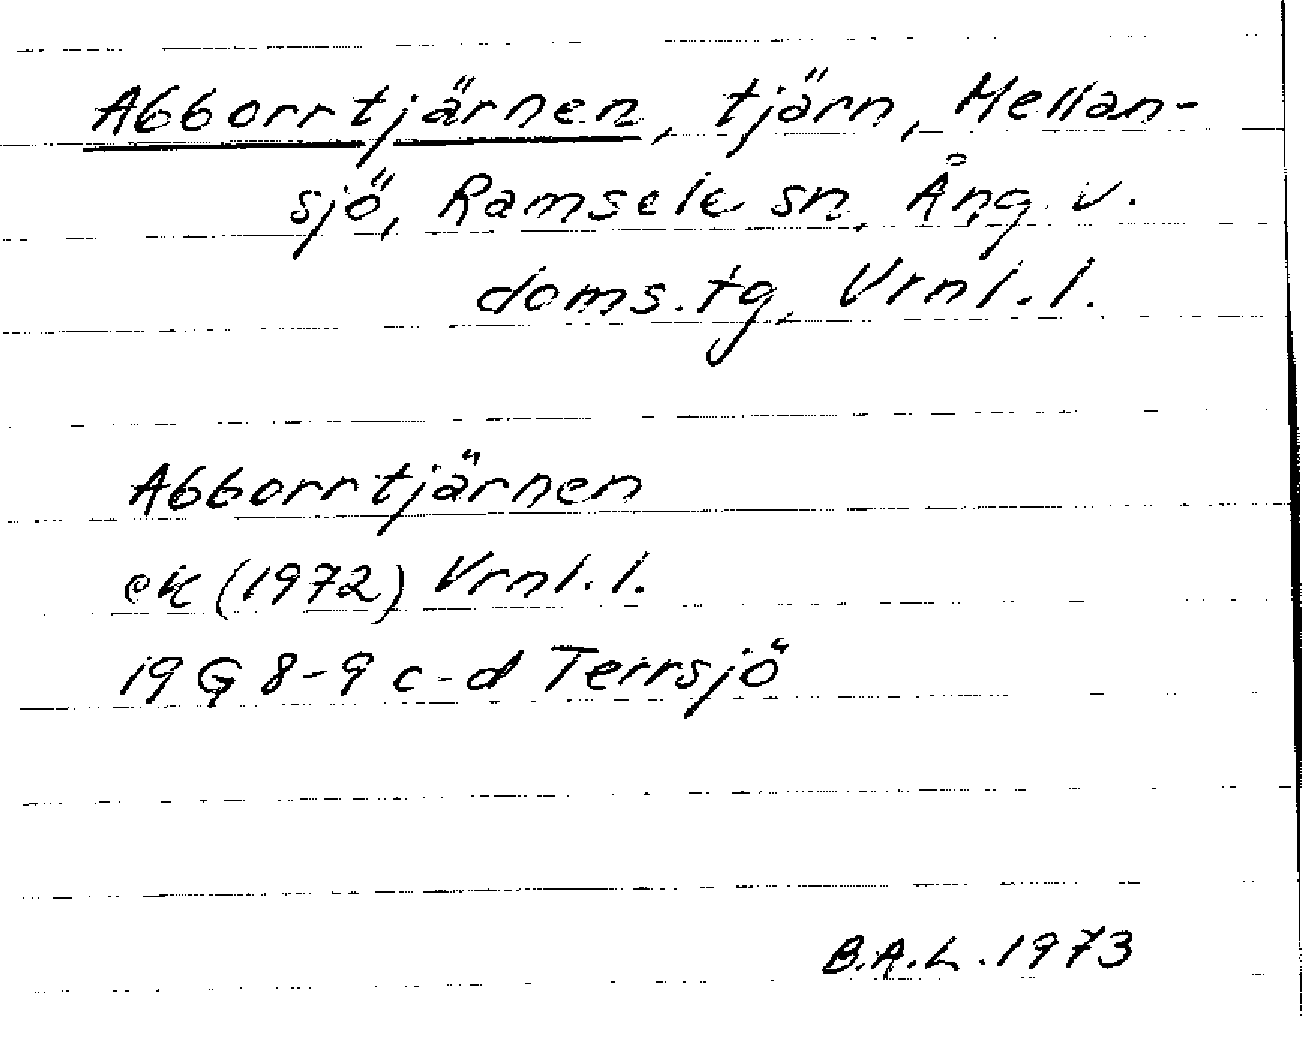 Abborrtjärnen, tjärn, Mellan-
sjö, Ramsele sn, Ång. v.
doms.tg, Vrnl. l.
Abborrtjärnen
ek (1972) Vrnl. l.
19 G 8-9 c-d Terrsjö
B.A.L. 1973